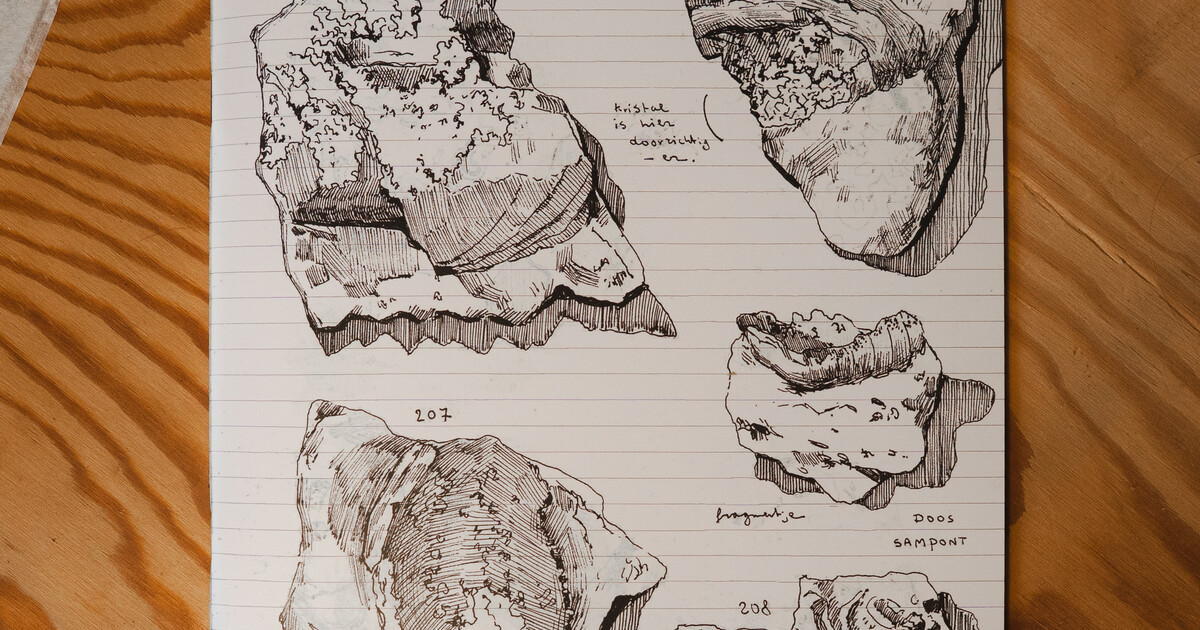 kristal
is hier
doorzichtig
-er.
207
fragmentje
DOOS
SAMPONT
208